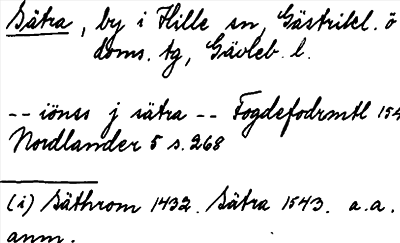 Sätra, by i Hille sn, Gästrikl. ö
doms. tg, Gävleb. l.
-- iönss j sätra -- Fogdefodrmtl 154
Nordlander 5 s. 268
(i) Säthrom 1432. Sätra 1543. a.a.
anm.